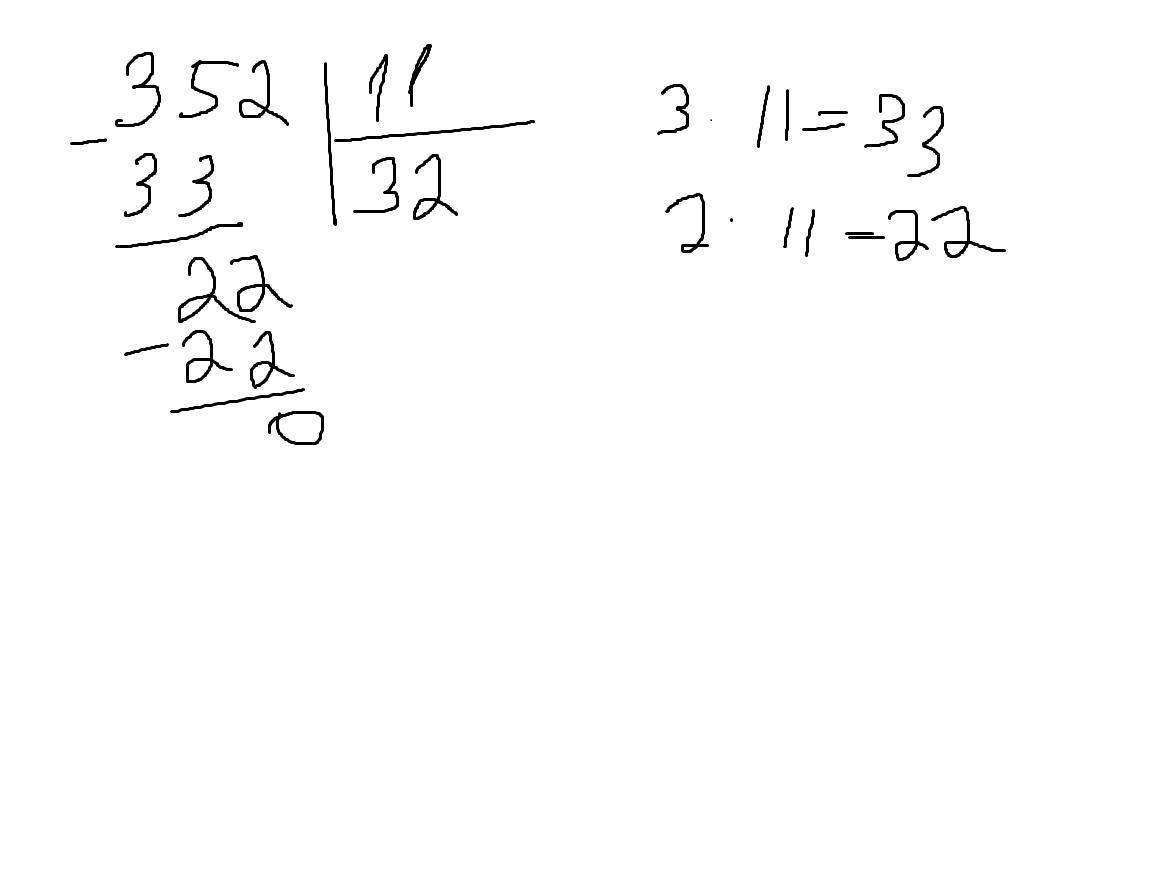 352 11
- 33 32
22
- 22
0
3 · 11 = 33
2 · 11 = 22